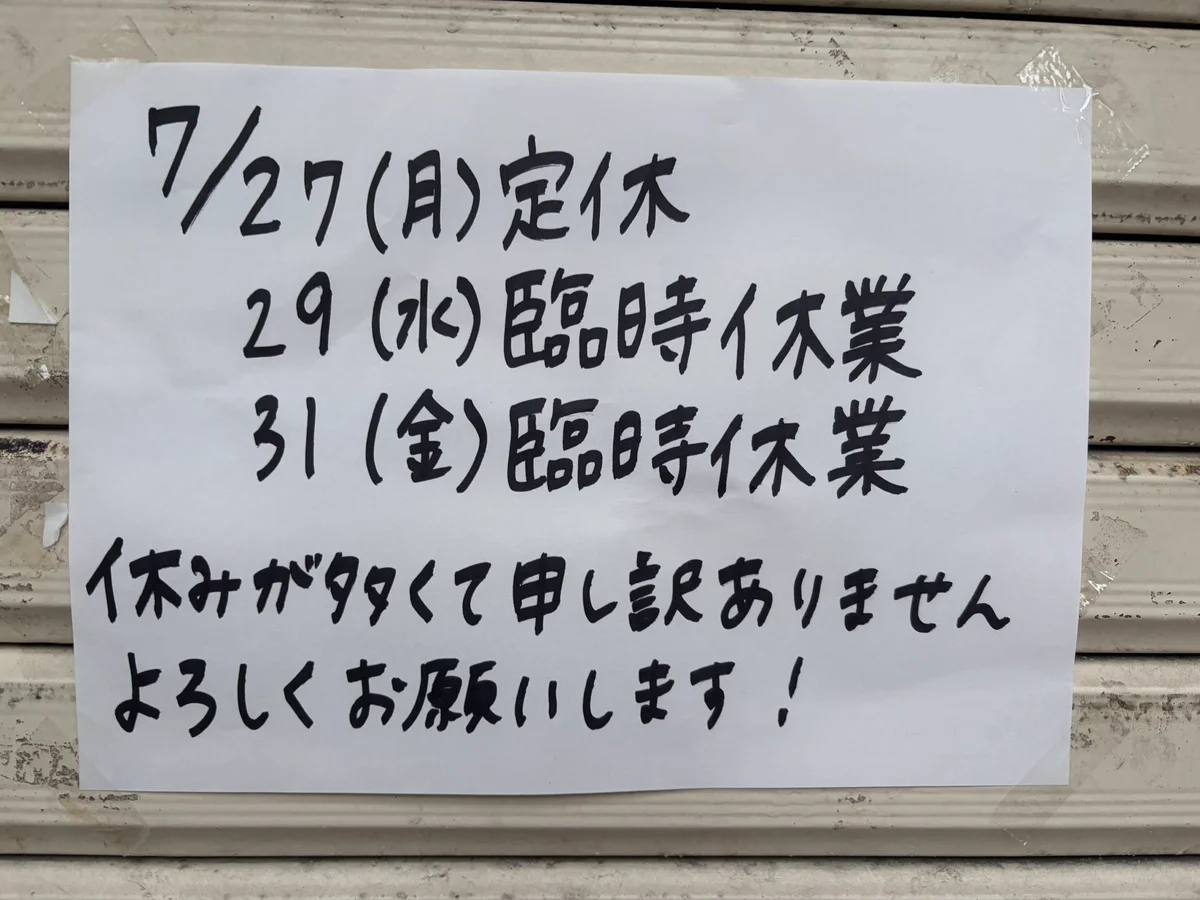 7/27(月)定休
29(水)臨時休業
31(金)臨時休業
休みが多くて申し訳ありません
よろしくお願いします!